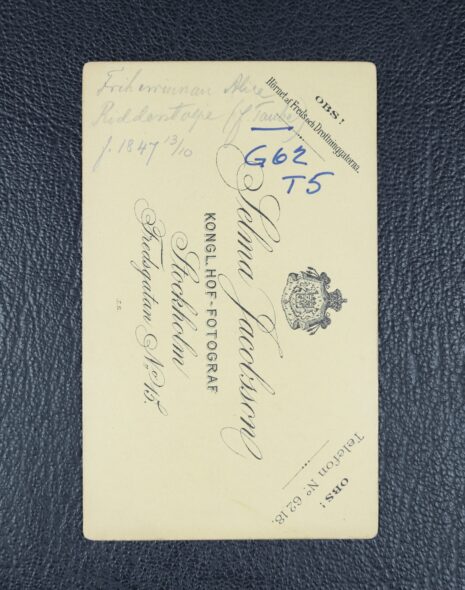 Friherrinnan Alice
Ridderstolpe (f Taube)
f. 1847 13/10
G62
T5
OBS!
Hörnet af Freds och Drottninggatorna.
Selma Jacobsson
KONGL. HOF-FOTOGRAF
Stockholm
Fredsgatan No 15.
OBS!
Telefon No 62 18.